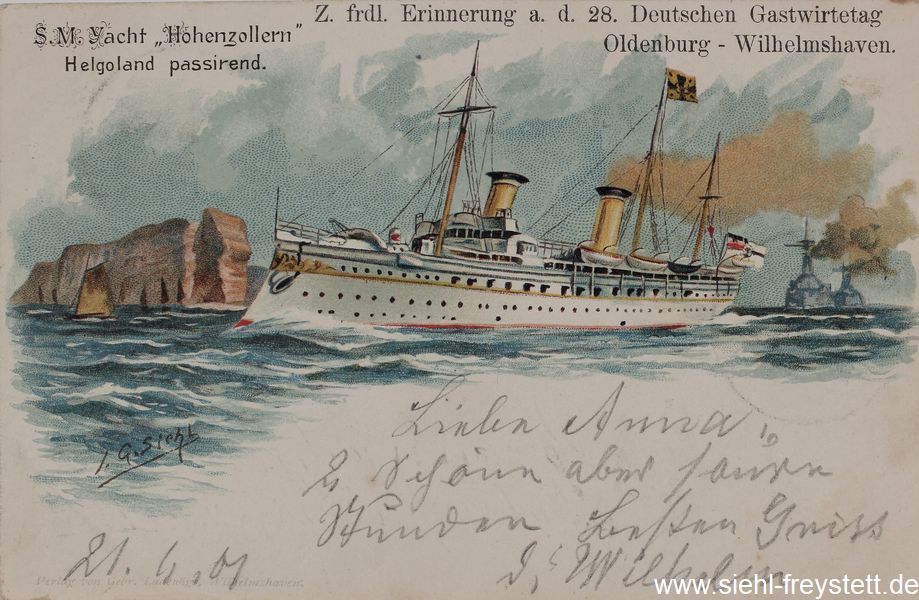 S.M. Yacht „Hohenzollern"
Helgoland passirend.
Z. frdl. Erinnerung a. d. 28. Deutschen Gastwirtetag
Oldenburg - Wilhelmshaven.
Liebe Anna,
2 Schöne aber saure
Stunden Besten Gruss
d. Wilhelm
21. 6. 01
Verlag von Gebr. Ladewigs, Wilhelmshaven.
www.siehl-freystett.de